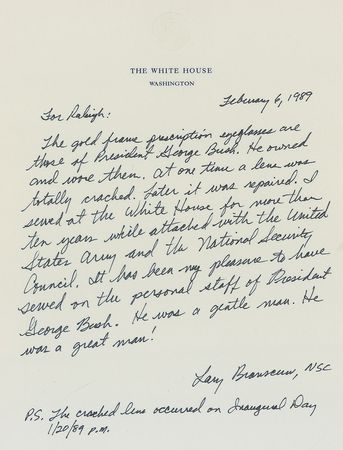 THE WHITE HOUSE
WASHINGTON
February 6, 1989
For Raleigh:
The gold frame prescription eyeglasses are
those of President George Bush. He owned
and wore them. At one time a lens was
totally cracked. Later it was repaired. I
served at the White House for more than
ten years while attached with the United
States Army and the National Security
Council. It has been my pleasure to have
served on the personal staff of President
George Bush. He was a gentle man. He
was a great man!
Lary Branscum, NSC
P.S. The cracked lens occurred on Inaugural Day
1/20/89 p.m.